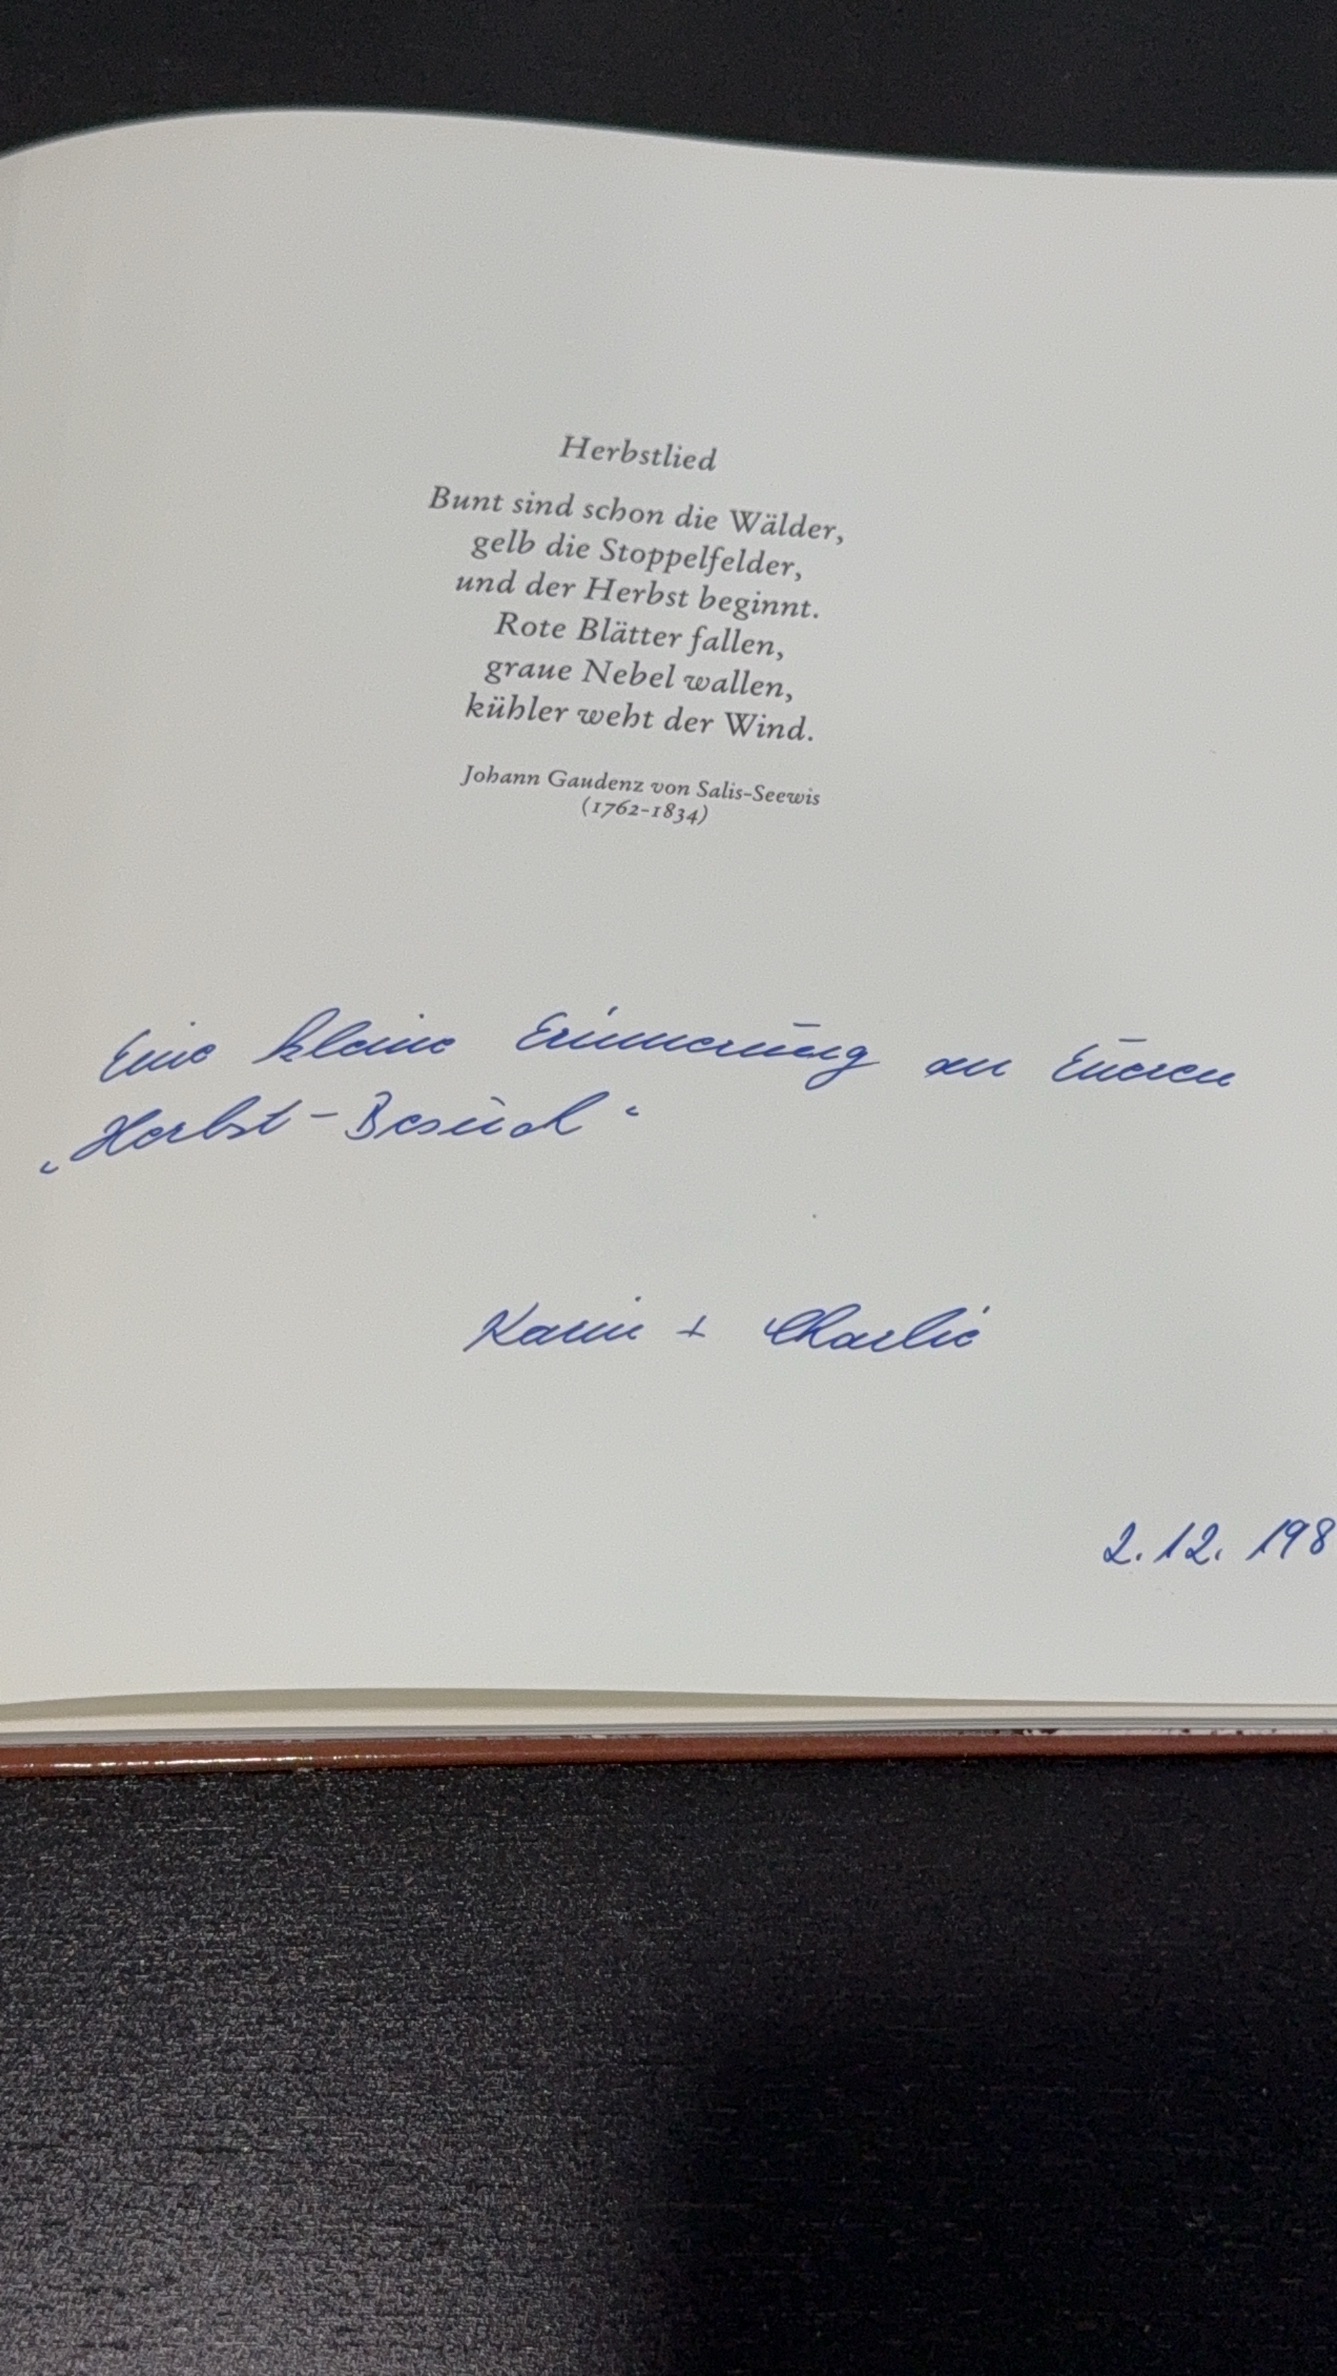 Herbstlied
Bunt sind schon die Wälder,
gelb die Stoppelfelder,
und der Herbst beginnt.
Rote Blätter fallen,
graue Nebel wallen,
kühler weht der Wind.
Johann Gaudenz von Salis-Seewis
(1762-1834)
Eine kleine Erinnerung an Eueren
„Herbst-Besuch“
Karin + Charlie
2.12. 198